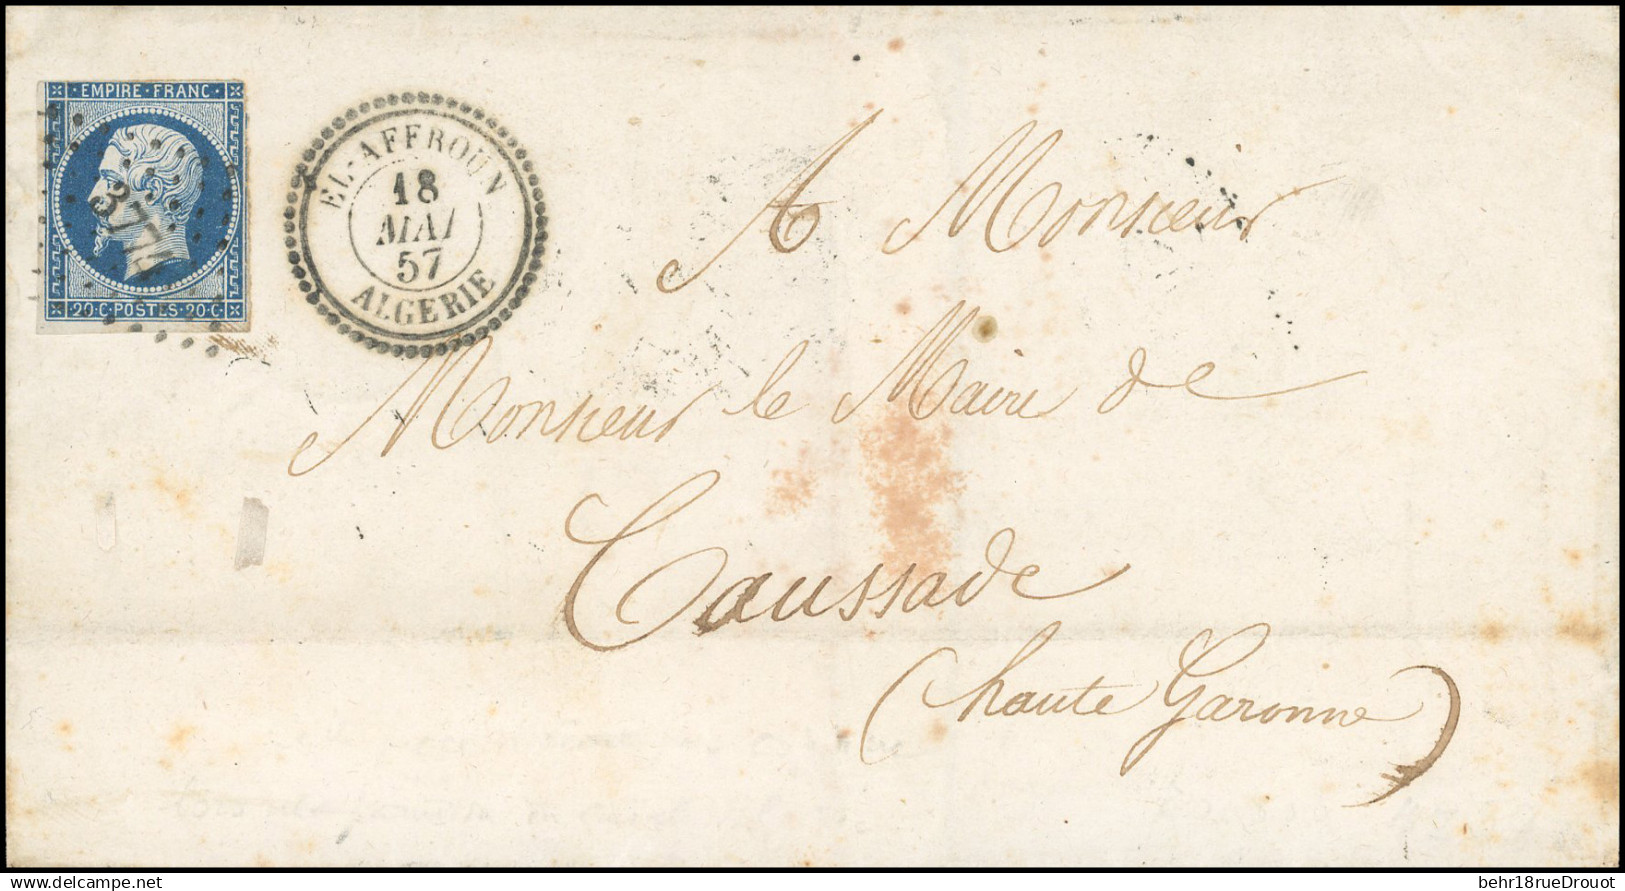 · EMPIRE · FRANC ·
20·C·POSTES·20·C·
EL-AFFROUN
18
MAI
57
ALGERIE
A Monsieur
Monsieur le Maire de
Caussade
(haute Garonne)
www.delcampe.net
behr18rueDrouot